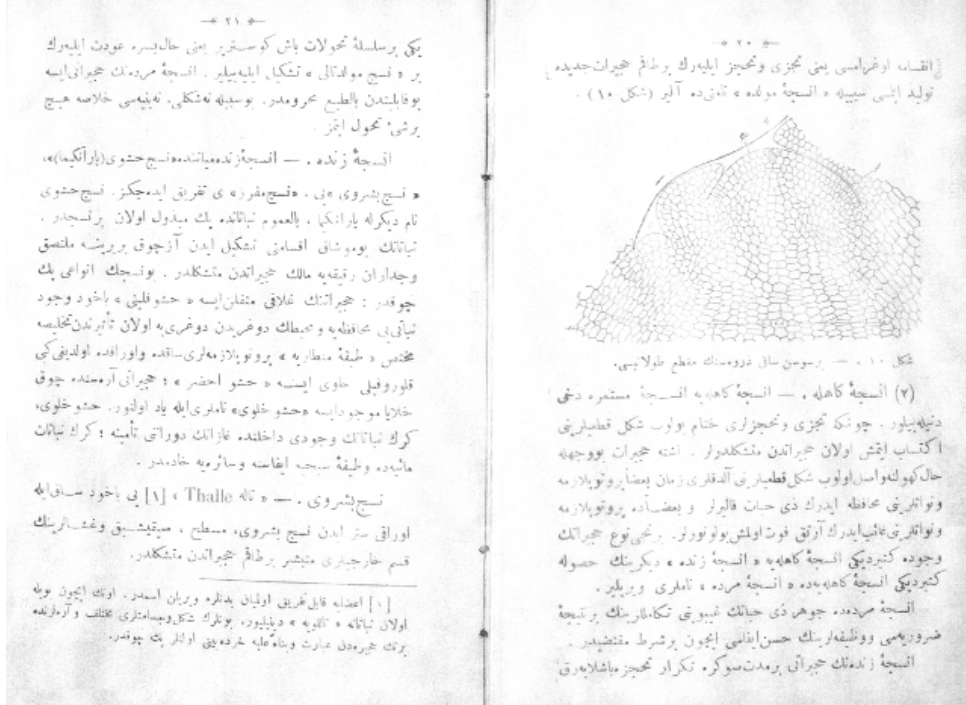 — ٢٠ —
انقسامه اوغرامسی یعنی تجزی وتحجز ایلیه‌رك برطاقم حجیرات جدیده
تولید ایتمسی سببیله « انسجهٔ مولده » نامنی‌ده آلیر (شكل ١٠) .
شكل ١٠ . — برسوسن ساق ذروه‌سنك مقطع طولانیسی.
(٢) انسجهٔ كاهله . — انسجهٔ كاهله‌یه انسجهٔ مستمره دخی
دنیله‌بیلور . چونكه تجزی وتحجزلری ختام بولوب شكل قطعیلرینی
اكتساب ایتمش اولان حجیراتدن متشكلدرلر . اشته حجیرات بووجهله
حال كهولته واصل اولوب شكل قطعیلرینی آلدقلری زمان بعضاً پروتوپلازمه
ونواتلرینی محافظه ایدرك ذی حیات قالیرلر و بعضاًده پروتوپلازمه
ونواتلرینی غائب ایدرك آرتق فوت اولمش بولونورلر. برنجی نوع حجیراتك
وجوده كتیردیكی انسجهٔ كاهله‌یه « انسجهٔ زنده » دیكرینك حصوله
كتیردیكی انسجهٔ كاهله‌یه‌ده « انسجهٔ مرده » ناملری ویریلیر.
انسجهٔ مرده‌ده جوهر ذی حیاتك غیبوبتی تكاملرینك برنتیجهٔ
ضروریه‌سی ووظیفه‌لرینك حسن ایفاسی ایچون برشرط مقتضیدر.
انسجهٔ زنده‌نك حجیراتی برمدت صوكره تكرار تحجزه باشلایه‌رق
— ٢١ —
یكی برسلسلهٔ تحولات باش كوستریر یعنی حال یسره عودت ایلیه‌رك
بر « نسج مولد تالی » تشكیل ایلیه‌بیلیر . انسجهٔ مرده‌نك حجیراتی ایسه
بوقابلیتدن بالطبع محرومدر. بوسبیله نه‌شكلی، نه‌بنیه‌سی خلاصه هیچ
برشی تحول ایتمز .
انسجهٔ زنده . — انسجهٔ زنده میاننده «نسج حشوی (پارانكیما)»،
« نسج بشروی »یی . «نسج مفرز» ی تفریق ایده‌جكز. نسج حشوی
نام دیكرله پارانكیما ، بالعموم نباتاتده پك مبذول اولان برنسجدر .
نباتاتك یوموشاق اقسامنی تشكیل ایدن آز چوق بربرینه ملتصق
وجداران رقیقه‌یه مالك حجیراتدن متشكلدر . بونسجك انواعی پك
چوقدر : حجیراتنك غلافی متفلن ایسه « حشو فلینی » یاخود وجود
نباتی‌یی محافظه‌یه ومحیطك دوغریدن دوغری‌یه اولان تأثیرندن تخلیصه
مختص « طبقهٔ منطاریه » پروتوپلازمه‌لری ساقده واوراقده اولدیغی كبی
قلوروفیلی حاوی ایسه « حشو اخضر » ؛ حجیراتی آره‌سنده چوق
خلایا موجود ایسه «حشو خلوی» ناملری ایله یاد اولنور. حشو خلوی،
كرك نباتاتك وجودی داخلنده غازاتك دوراننی تأمینه ؛ كرك نباتات
مائیه‌ده وظیفهٔ سبحیه ایفاسنه وسائره‌یه خادمدر .
نسج بشروی . — « تاله Thalle » [١] یی یاخود ساق ایله
اوراقی ستر ایدن نسج بشروی، مسطح ، صیقیشیق وغشالرینك
قسم خارجیلری متبشر برطاقم حجیراتدن متشكلدر.
[١] اعضایه قابل تفریق اولمیان بدنلره ویریلن اسمدر. اونك ایچون بویله
اولان نباتاته « تالویه » دینیلیور. بونلرك شكل وجسامتلری مختلف و آره‌لرنده
برتك حجیره‌دن عبارت وبناءً علیه خرده‌بینی اولانلر پك چوقدر.